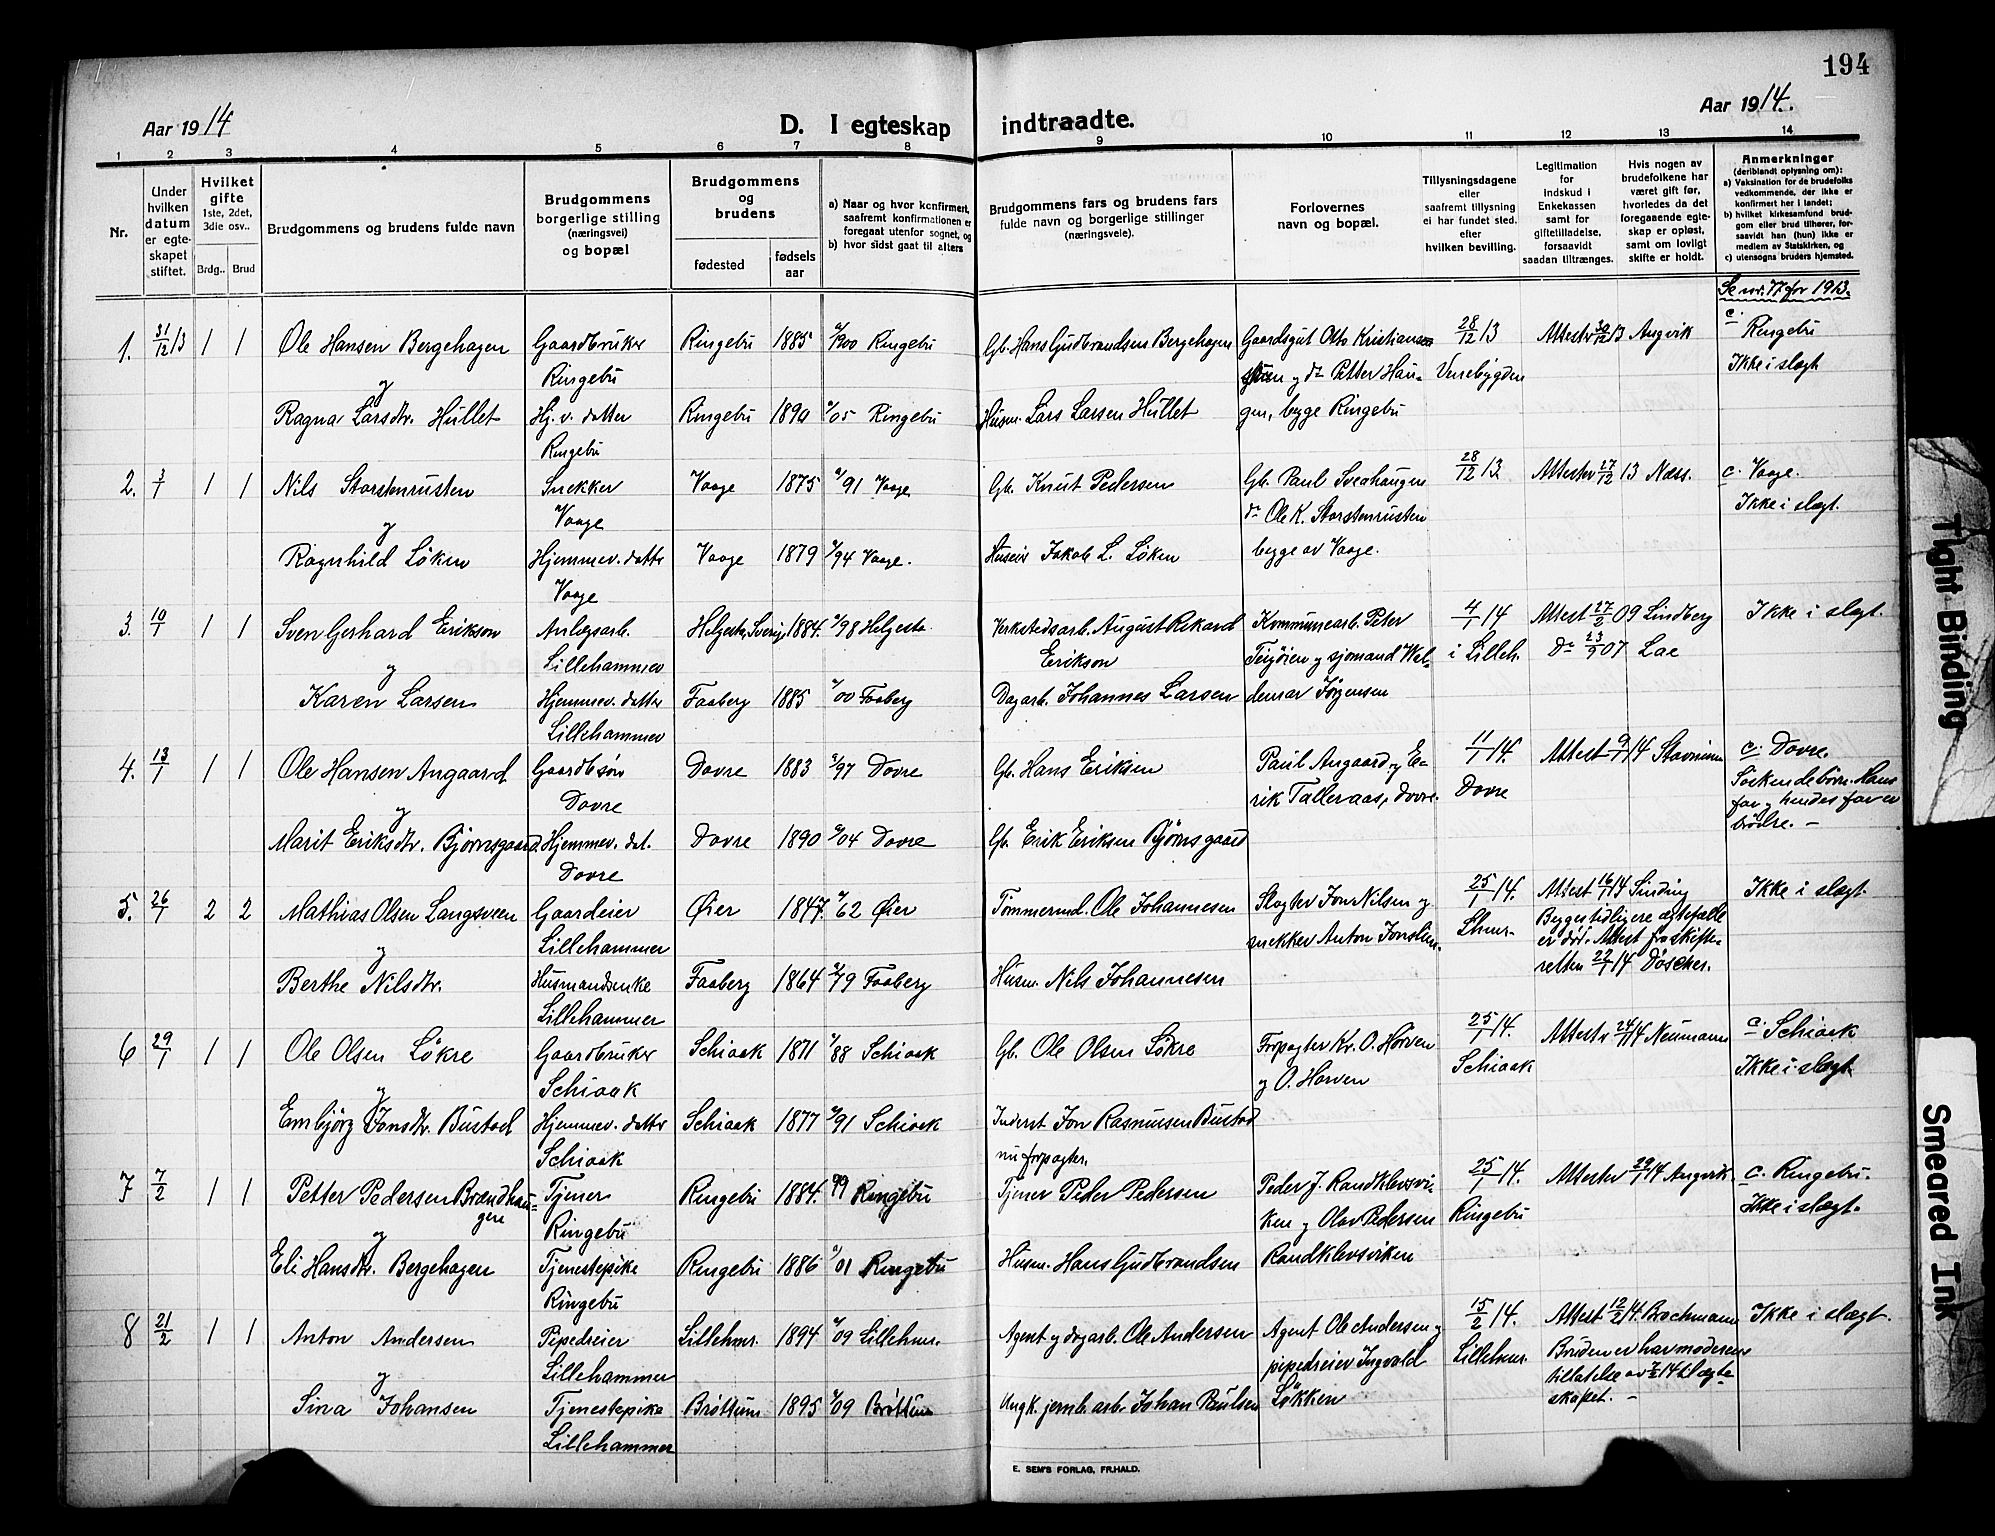 194
Aar 1914
D. I egteskap indtraadte.
Aar 1914.
1 2 3 4 5 6 7 8 9 10 11 12 13 14
Nr.
Under hvilken datum er egteskapet stiftet.
Hvilket gifte 1ste, 2det, 3die osv..
Brdg.. Brud
Brudgommens og brudens fulde navn
Brudgommens borgerlige stilling (næringsvei) og bopæl
Brudgommens og brudens
fødested
fødsels aar
a) Naar og hvor konfirmert, saafremt konfirmationen er foregaat utenfor sognet, og
b) hvor sidst gaat til alters
Brudgommens fars og brudens fars fulde navn og borgerlige stillinger (næringsveie).
Forlovernes navn og bopæl.
Tillysningsdagene eller saafremt tillysning ei har fundet sted. efter hvilken bevilling.
Legitimation for indskud i Enkekassen samt for giftetilladelse, forsaavidt saadan tiltrænges.
Hvis nogen av brudefolkene har været gift før, hvorledes da det foregaaende egteskap er opløst, samt om lovligt skifte er holdt.
Anmerkninger (deriblandt oplysning om):
a) Vaksination for de brudefolks vedkommende, der ikke er konfirmert her i landet;
b) hvilket kirkesamfund brudgom eller brud tilhører, forsaavidt han (hun) ikke er medlem av Statskirken, og
c) utensogns bruders hjemsted.
Se nr. 77 for 1913.
1. 31/12 13 1 1 Ole Hansen Bergehagen Gaardbruker Ringebu Ringebu 1885 /1900 Ringebu Gb. Hans Gudbrandsen Bergehagen Gaardsgut Otto Kristiansen 28/12 13 Attest 30/12 13 Angvik c. Ringebu
og d° Petter Haugen, begge Ringebu Venebygden Ikke i slægt
y
Ragna Larsdtr. Hullet Hj. v. datter Ringebu Ringebu 1890 /05 Ringebu Husm. Lars Larsen Hullet
2. 3/1 1 1 Nils Storstenrusten Snekker Vaage Vaage 1875 /91 Vaage Gb. Knut Pedersen Gb. Paul Sveahaugen 28/12 13 Attest 27/12 13 Næss. c. Vaage.
d° Ole K. Storstenrusten begge av Vaage. Ikke i slægt.
y
Ragnhild Løken Hjemmev. datter Vaage Vaage 1879 /94 Vaage. Husm. Jakob L. Løken
3. 10/1 1 1 Sven Gerhard Erikson Anlegsarb. Lillehammer Helgesta, Sverig 1884. /98 Helgesta. Verkstedsarb. August Rikard Erikson Kommunearb. Peter 4/1 14 Attest 27/2 09 Lindberg Ikke i slægt.
og sjømand Waldemar Jørgensen i Lilleh. D° 23/9 07 Lae
y
Karen Larsen Hjemmev. datter Lillehammer Faaberg 1885 /00 Faaberg Dagarb. Johannes Larsen
4. 13/1 1 1 Ole Hansen Angaard Gaardbsøn Dovre Dovre 1883 /97 Dovre Gb. Hans Eriksen Paul Angaard, og Erik Talleraas, Dovre. 11/1 14. Dovre Attest 9/1 14 c. Dovre.
Søskendebørn. Hans far og hendes far er brødre. –
y
Marit Eriksdtr. Bjørnsgaard. Hjemmev. dat. Dovre Dovre 1890 /04 Dovre Gb. Erik Eriksen Bjørnsgaard
5. 26/1 2 2 Mathias Olsen Langsveen Gaardeier Lillehammer Øier 1847. /62 Øier Tømmermd. Ole Johannesen Slagter Jon Nilsen og snekker Anton 25/1 14. Lhmr. Attest 16/1 14 Sinding Ikke i slægt.
Begges tidligere ægtefælle er død. Attest fra skifteretten 22/1 14 Döscher.
y
Berthe Nilsdtr. Husmandsenke Lillehammer Faaberg 1864 /79 Faaberg Husm. Nils Johannesen
6 29/1 1 1 Ole Olsen Løkre Gaardbruker Schiaak Schiaak 1871 /88 Schiaak Gb. Ole Olsen Løkre Forpagter Kr. O. Horven og O. Horven 25/1 14. Schiaak Attest 24/1 14 Neumann c. Schiaak
Ikke i slægt
y
Embjørg Jonsdtr. Bustad Hjemmev. datter Schiaak Schiaak 1877 /91 Schiaak Inderst Jon Rasmussen Bustad nu forpagter.
7 7/2 1 1 Petter Pedersen Brændhaugen Tjener Ringebu Ringebu 1884. 99 Ringebu Tjener Peder Pedersen Peder J. Randklevsviken og Olav Pedersen Randklevsviken 25/1 14. Ringebu Attest 29/1 14 Angvik. c. Ringebu.
Ikke i slægt.
y
Eli Hansdtr. Bergehagen Tjenestepike Ringebu Ringebu 1886 /01 Ringebu Husm. Hans Gudbrandsen
8 21/2 1 1 Anton Andersen Pipedreier Lillehammer Lillehmr. 1894 /09 Lillehmr. Agent og dagarb. Ole Andersen Agent Ole Andersen og pipedreier Ingvald Løkken 15/2 14. Lillehmr. Attest 12/2 14. Brochmann Ikke i slægt.
Bruden er har moderens tillatelse av 7/2 14 til ægteskapet. –
y
Sina Johansen Tjenestepike Lillehammer Brøttum 1895 /09 Brøttum Ungk. jernb. arb. Johan Paulsen
E. SEM'S FORLAG, FR.HALD.
Tight Binding
Smeared Ink